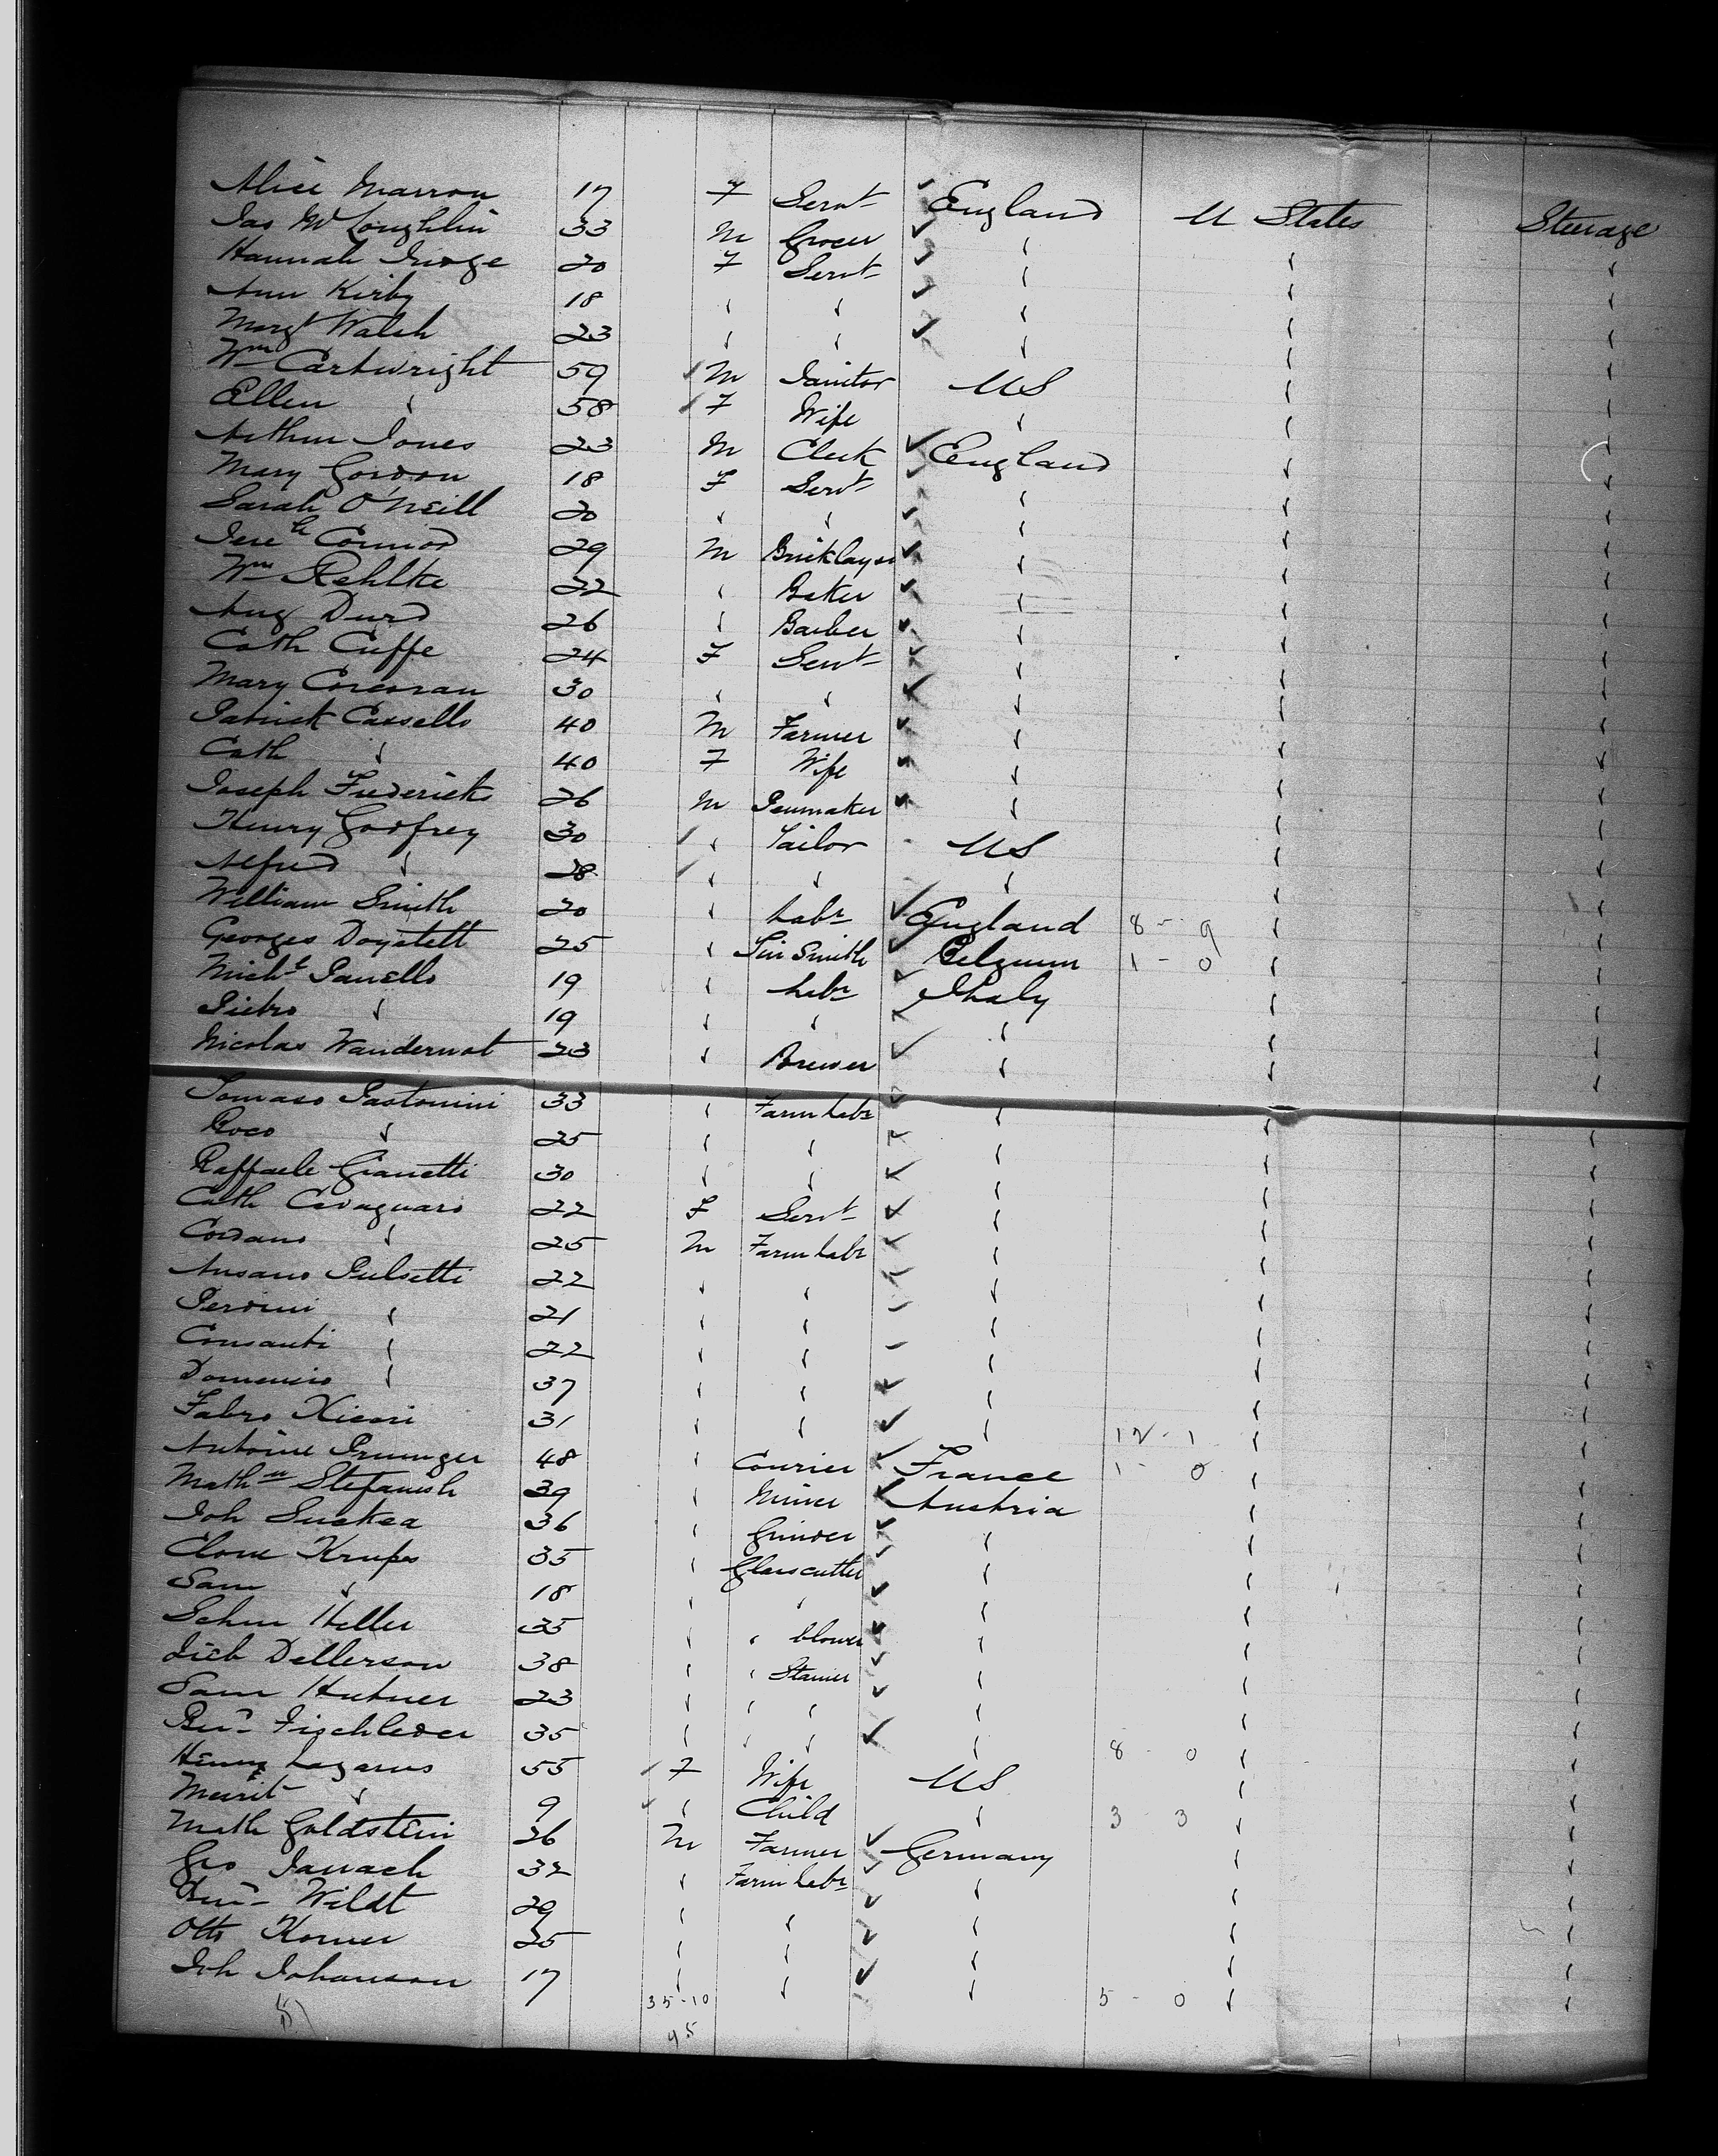 Alice Marron 17 F Servt England U States Steerage
Jas McLoughlin 33 M Grocer " " "
Hannah 20 F Servt " " "
Ann Kirby 18 " " " " "
Margt Walsh 23 " " " " "
Wm Cartwright 59 M Janitor US " "
Ellen " 58 F Wife " " "
Arthur Jones 23 M Clerk England " "
Mary Gordon 18 F Servt " " "
Sarah O'Neill 20 " " " " "
Jereh Connor 29 M Bricklayer " " "
Wm Rehlke 22 " Baker " " "
Aug Durd 26 " Barber " " "
Cath Cuffe 24 F Servt " " "
Mary Corcoran 30 " " " " "
Patrick Cassells 40 M Farmer " " "
Cath " 40 F Wife " " "
Joseph Fredericks 26 M Penmaker " " "
Henry Godfrey 30 " Tailor US " "
Alfred " 28 " " " " "
William Smith 20 " Labr England 8 - 9 " "
Georges Doystett 25 " Tin Smith Belgium 1 - 0 " "
Michl Panello 19 " Labr Italy " "
Pietro " 19 " " " " "
Nicolas Wandernot 23 " Brewer " " "
Tomaso Pastonini 33 " Farm Labr " " "
Roco " 25 " " " " "
Raffaele Gianetti 30 " " " " "
Cath Cavagnaro 22 F Servt " " "
Cordano " 25 M Farm Labr " " "
Ansano Pulsetti 22 " " " " "
Perdini " 21 " " " " "
Consanti " 22 " " " " "
Domenico " 37 " " " " "
Fabro Nicori 31 " " " 12 - 1 " "
Antoine Prunger 48 " Courier France 1 - 0 " "
Mathw Stefanish 39 " Miner Austria " "
Joh Suskea 36 " Grinder " " "
Clone Krupo 35 " Glasscutter " " "
Sam " 18 " " " " "
Schm Heller 35 " " blower " " "
Lieb Dellerson 38 " " Stainer " " "
Sam Hubner 23 " " " " " "
Benj Fischleder 35 " " " " 8 - 0 " "
Henny Lazarus 55 F Wife US " "
" 9 " Child " 3 3 " "
Math Goldstein 26 M Farmer Germany " "
Geo Janach 32 " Farm Labr " " "
Wildt 29 " " " " "
Otto Korner 25 " " " " "
Joh Johanson 17 " " " 5 - 0 " "
35-10
45